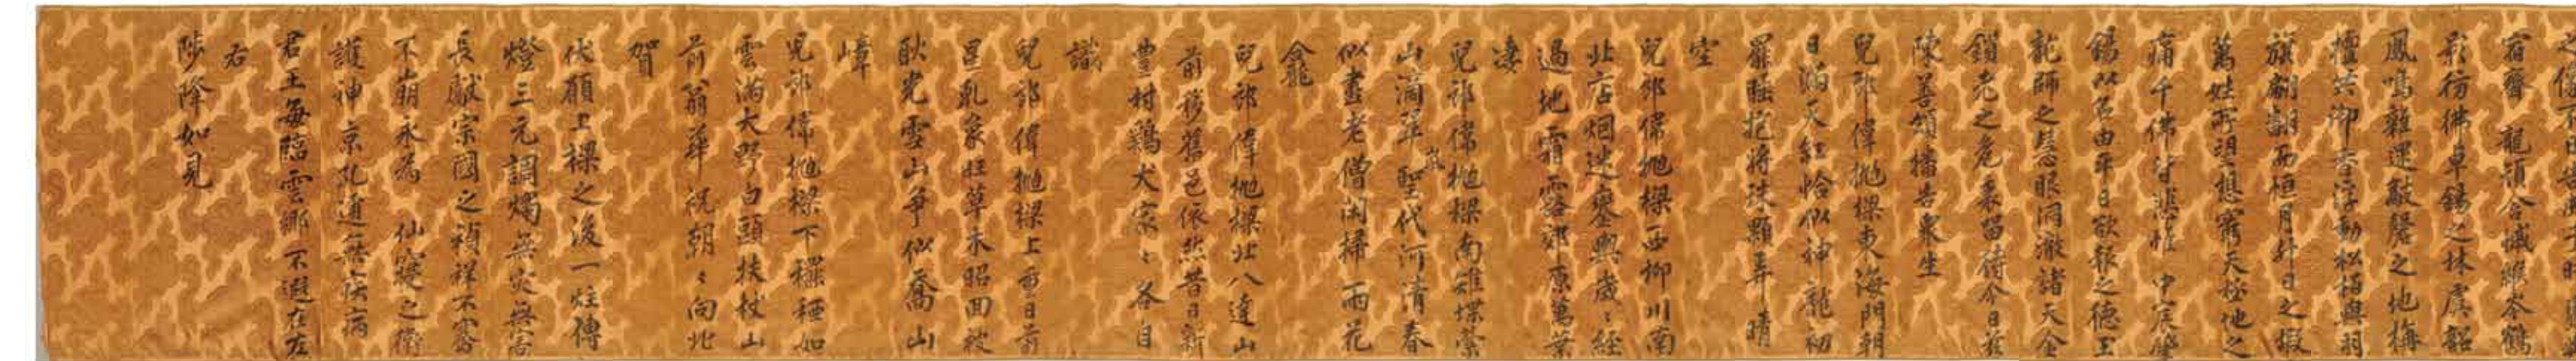 宿齋 龍頭含幟縹峯鶴
影彷彿卓錫之林虞韶
鳳鳴離遝敲磬之地梅
檀共御香浮動松栝與羽
旗翩翻而恒月升日之嘏
萬姓所祖想窮天極地之
痛千佛皆悲惟 中宸肇
錫以名由平日欲報之德王
龍師之眼洞澈諸天金
鎖老之留待今日茲
陳善頌播告衆生
兒郞偉抛樑東海門朝
日滿天紅恰似神龍初
罷睡抱將珠顆弄晴
空
兒郞偉抛樑西柳川南
北店烟迷鑾輿歲〻經
過地霜露郊原萬葉
凄
兒郞偉抛樑南雉堞縈
山滴翠嵐聖代河淸春
似畫老僧閑掃雨花
龕
兒郞偉抛樑北八達山
前移舊邑依然昔日新
豊村鷄犬家〻各自
識
兒郞偉抛樑上重日前
星乹象旺草木昭回被
耿光雪山爭似喬山
嶂
兒郞偉抛樑下䆉稏如
雲滿大野白頭扶杖山
前翁華祝朝〻向北
賀
伏願上樑之後一炷傳
燈三元調燭無災無害
長獻宗國之禎祥不騫
不崩永為 仙寢之衛
護神京孔邇無疾病
君王每臨雲鄕不遐在左
右
陟降如見